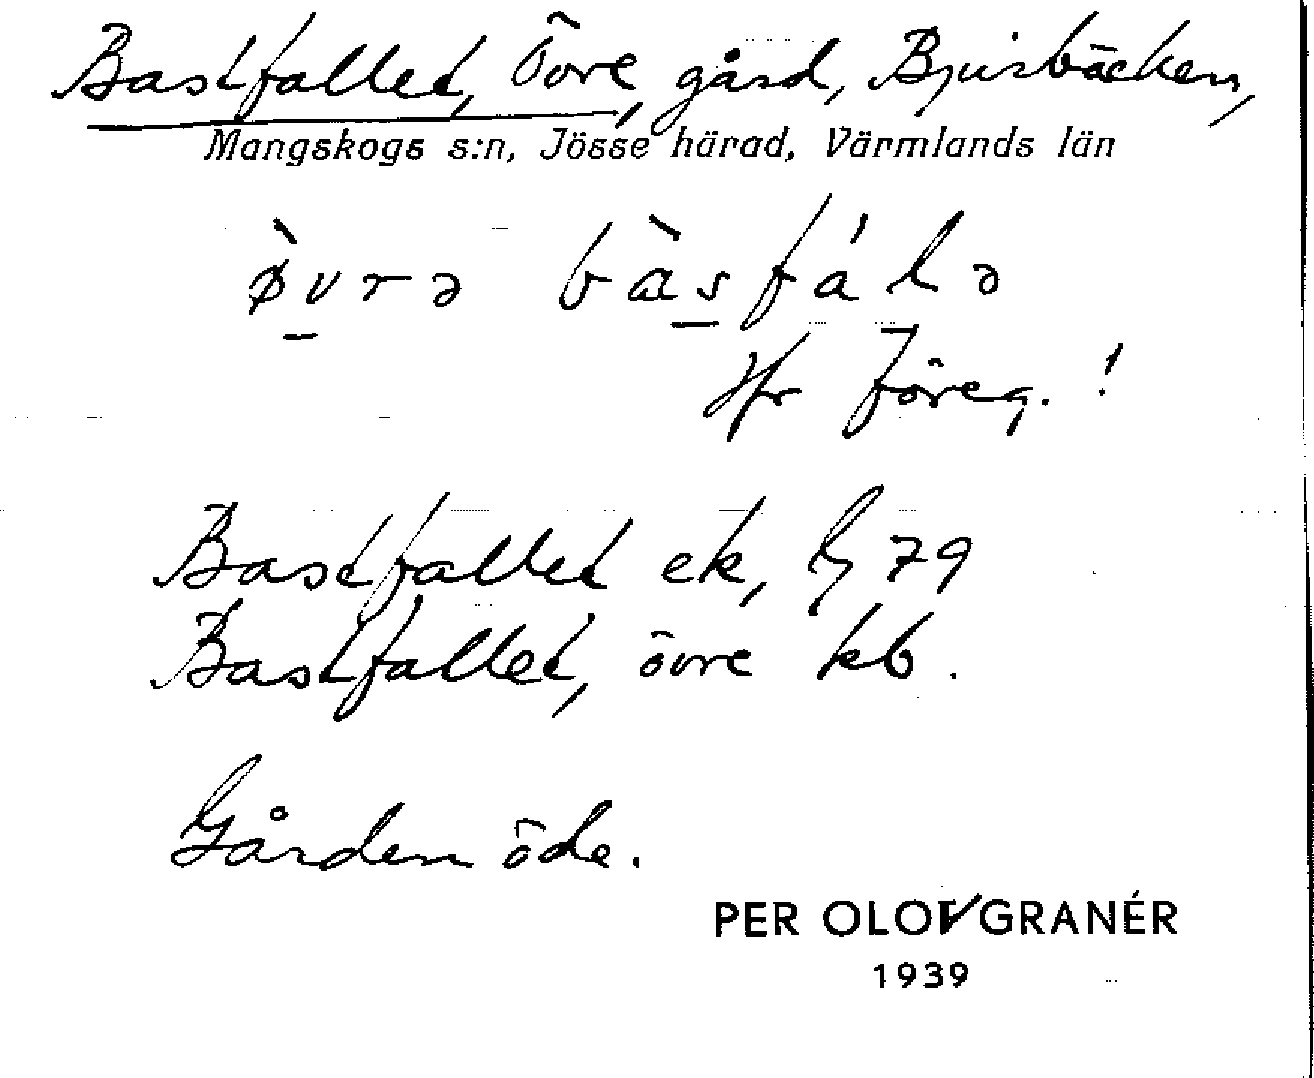 Bastfallet, Övre, gård, Bjursbäcken,
Mangskogs s:n, Jösse härad, Värmlands län
ø̀vrə bàsfálə
Jfr föreg. !
Bastfallet ek, 79
Bastfallet, övre kb.
Gården öde.
PER OLOV GRANÉR
1939